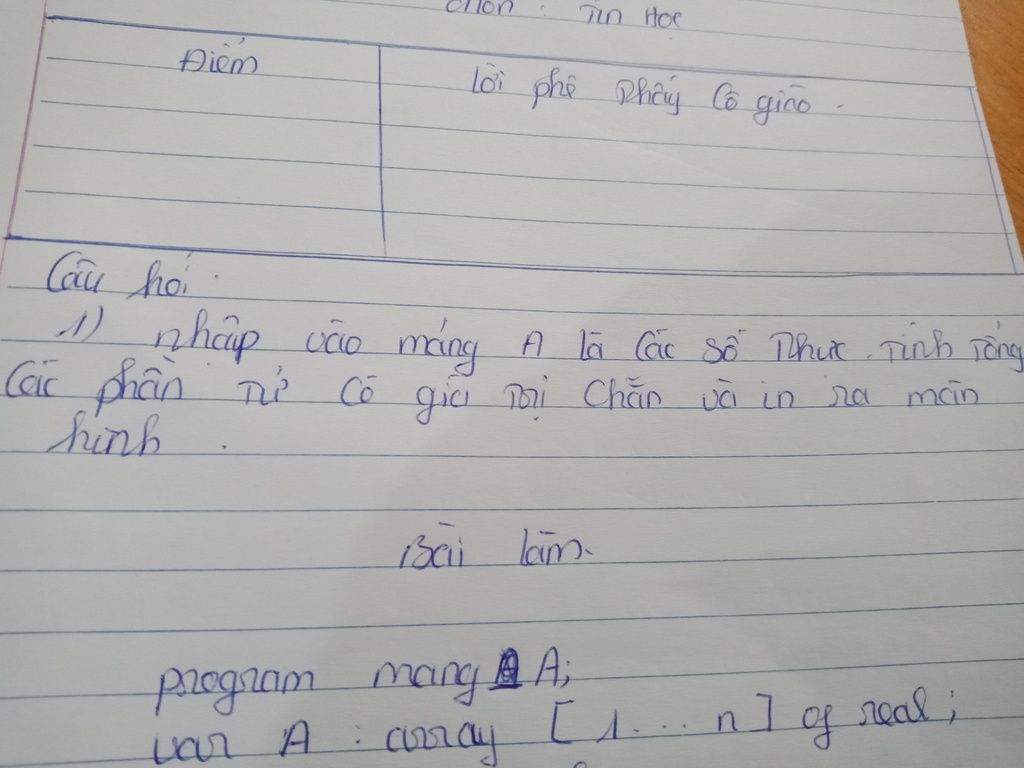 chọn : Tin Học
Điểm
Lời phê Thầy Cô giáo.
Câu hỏi:
1) nhập vào mảng A là Các số Thực. Tính Tổng
Các phần Tử Có giá Trị Chẵn và in ra màn
hình.
Bài làm.
program mang A;
var A : array [1...n] of real;